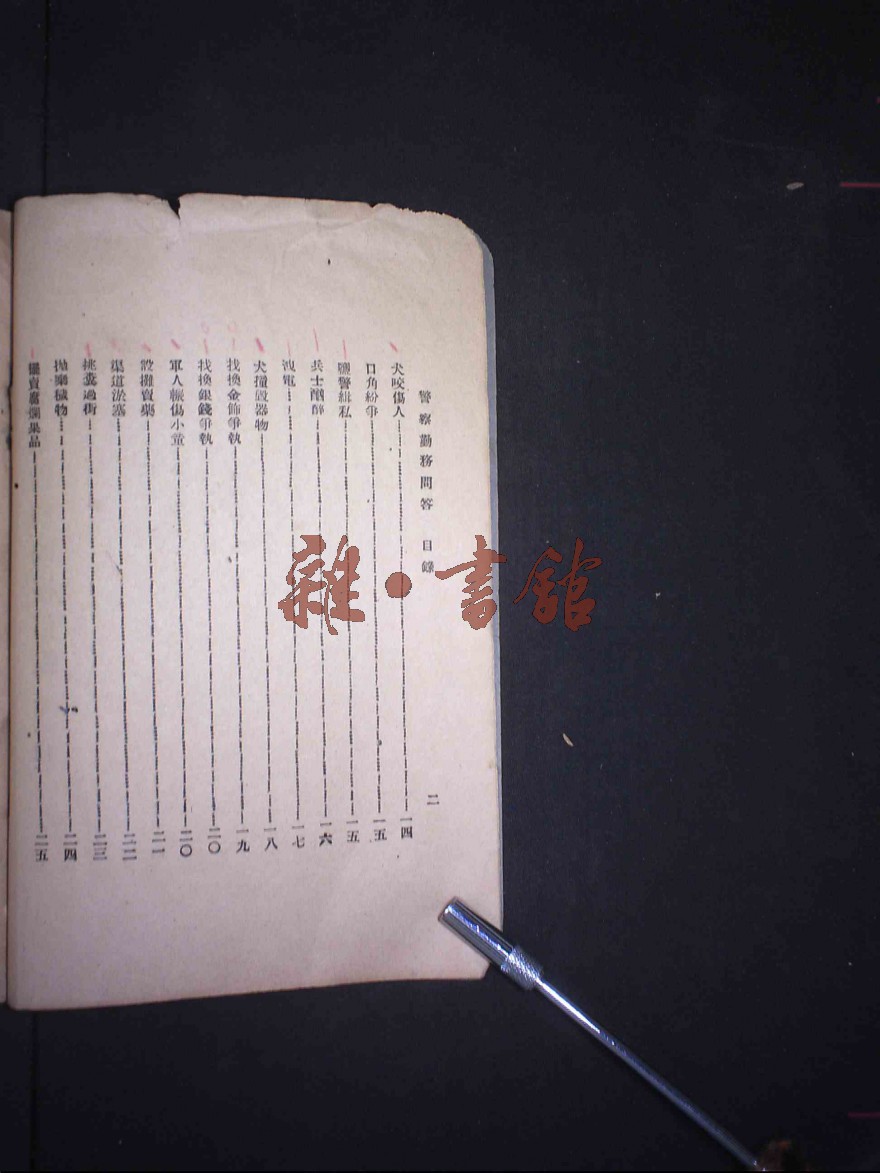 警察勤務問答 目錄 二
犬咬傷人 一四
口角紛爭 一五
鹽警緝私 一五
兵士酗醉 一六
洩電 一七
犬撞毀器物 一八
找換金飾爭執 一九
找換銀錢爭執 二〇
軍人輾傷小童 二〇
設攤賣藥 二一
渠道淤塞 二二
挑糞過街 二三
拋棄穢物 二四
擺賣腐爛果品 二五
雜·書館